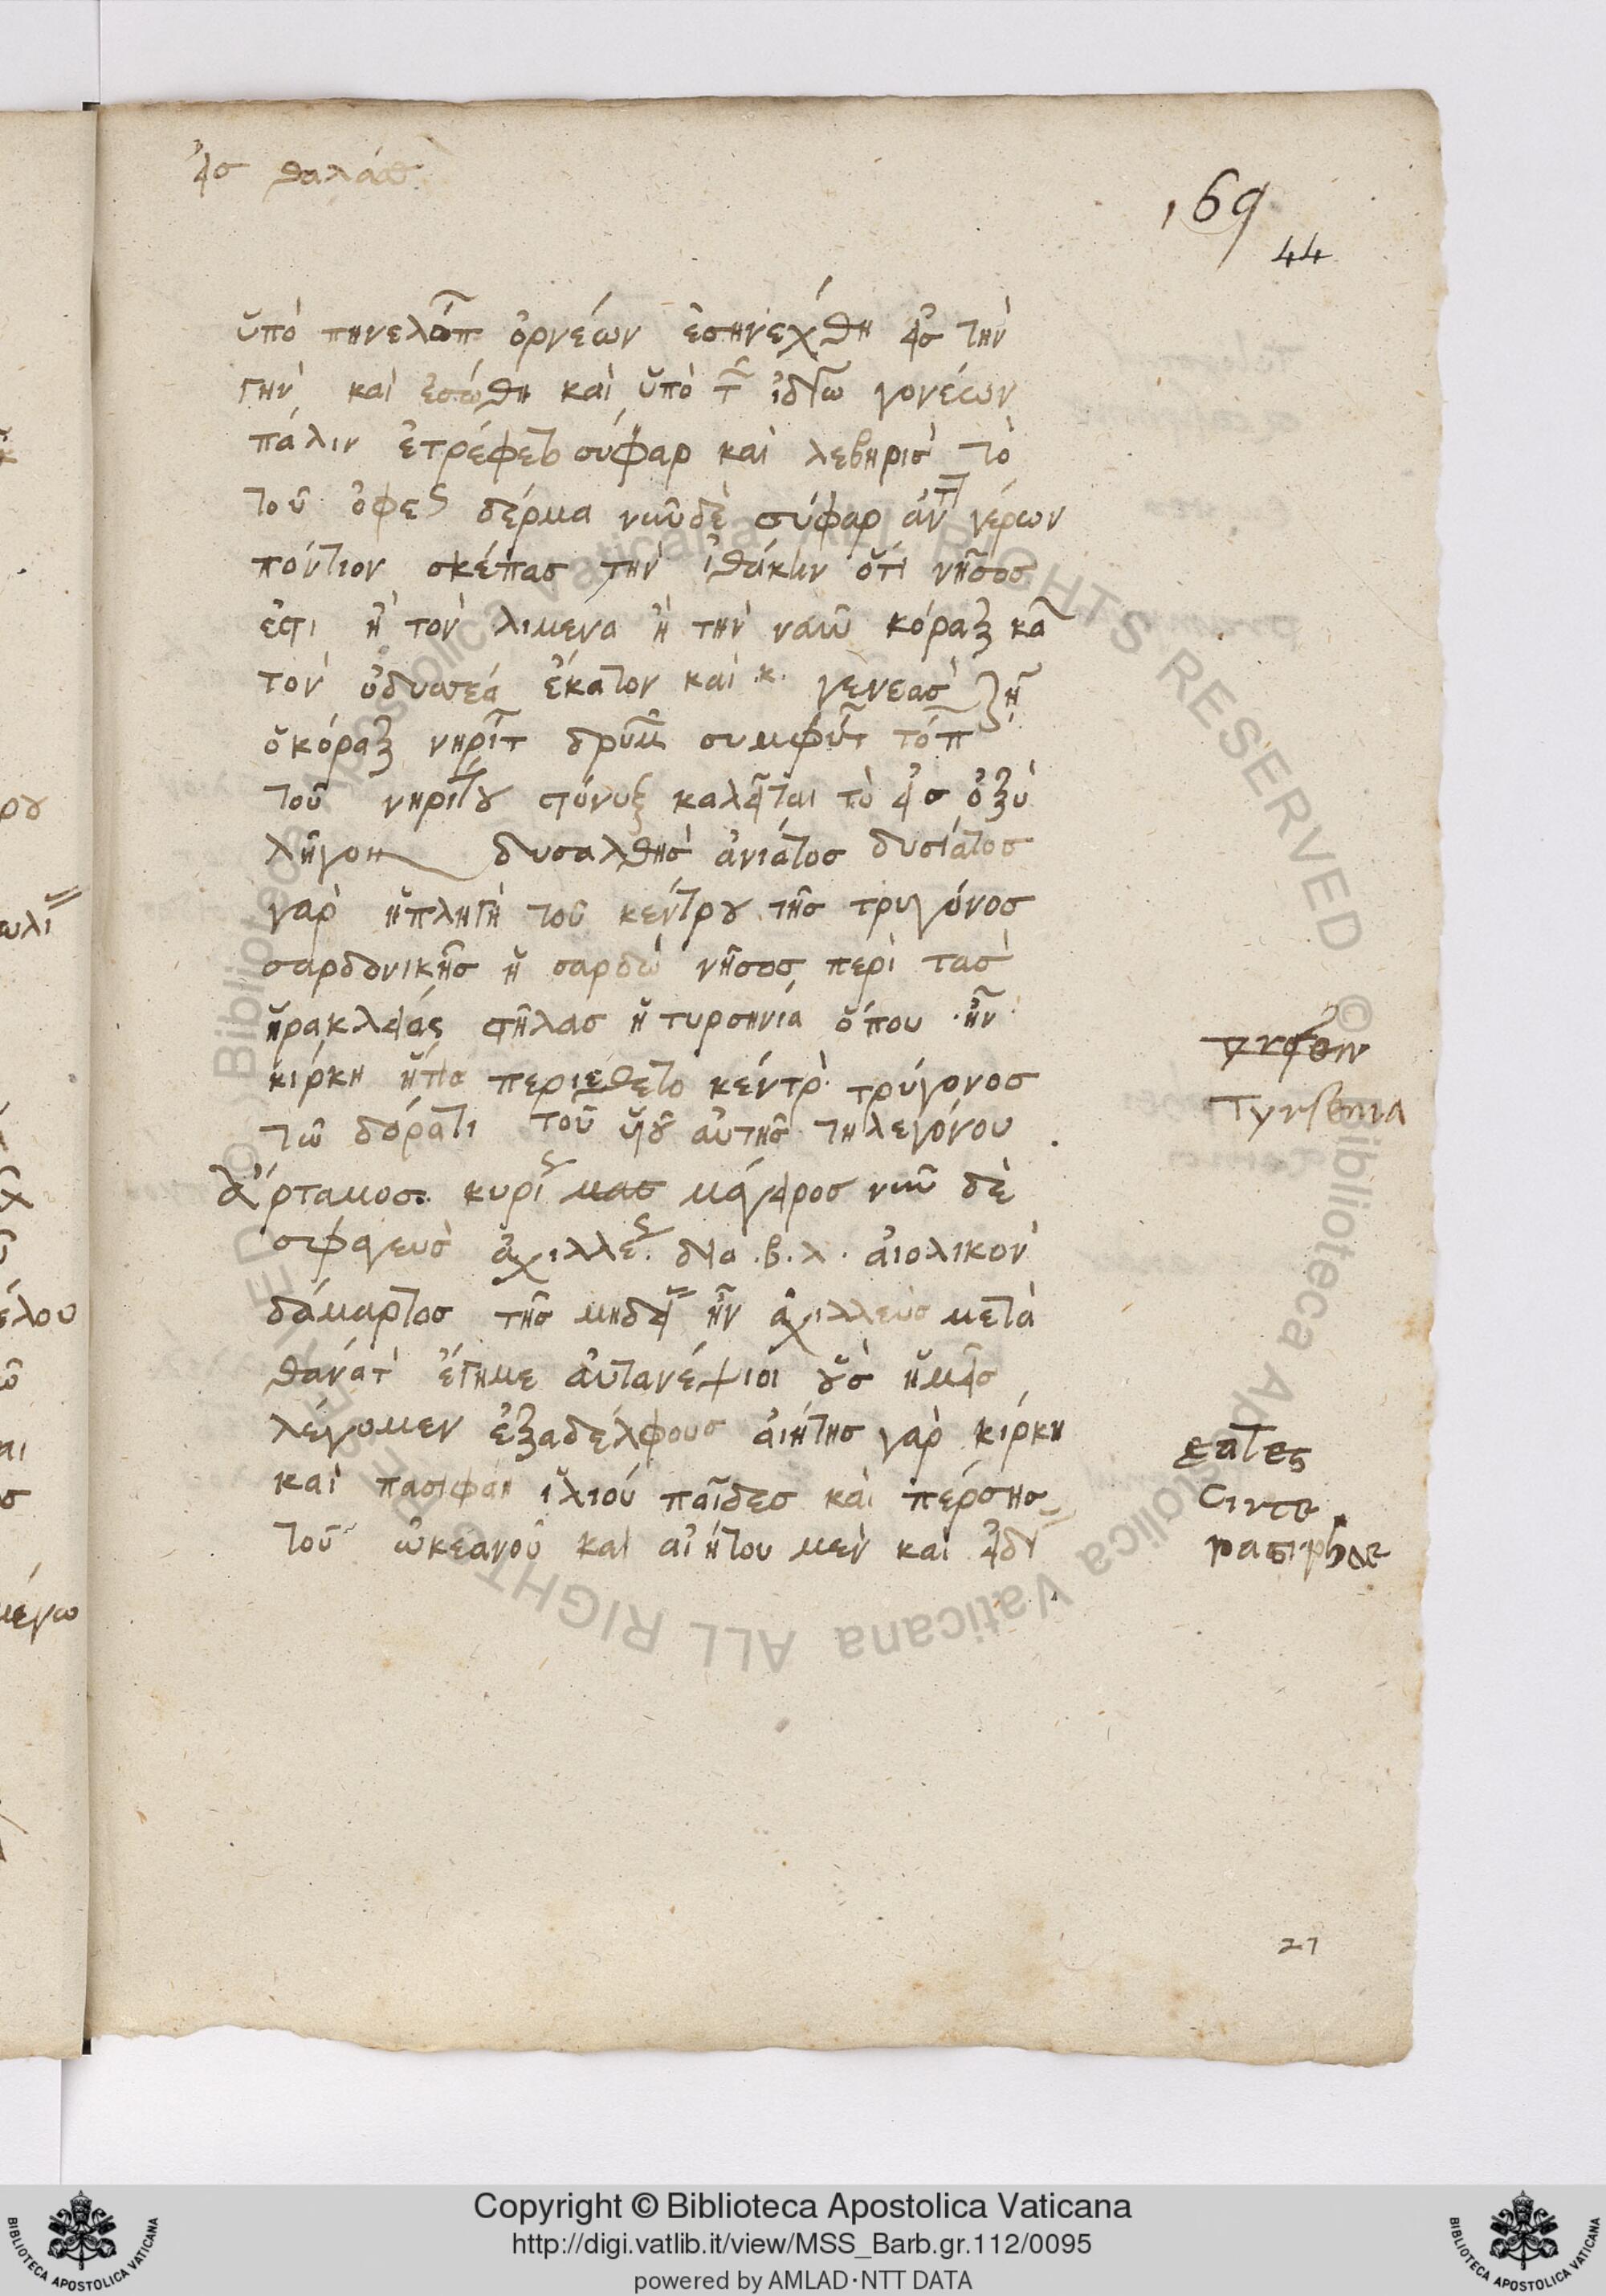 εἰσ θαλάσ
169
44
ὑπὸ πηνελόπ ὀρνέων ἐσηνέχθη εἰσ τὴν
γὴν καὶ ἐσώθη καὶ ὑπὸ τ ἰδίω γονέων
πάλιν ἐτρέφετο σύφαρ καὶ λεβηρισ τὸ
τοῦ ὄφεσ δέρμα νῦν δὲ σύφαρ ἀντ γέρων
πόντιον σκέπας τὴν ἰθάκην ὅτι νῆσος
ἐστι ἢ τὸν λιμενα ἢ τὴν ναῦ κόραξ κα
τὸν ὀδυσσέα ἑκατον καὶ .κ. γενεασ ζῆ
ὁ κόραξ νηρίτ δρυμ συμφύτ τόπ
τοῦ νηρίτου στόνυξ καλεῖται τὸ εἰσ ὀξὺ
λῆγον δυσαλθὴσ ἀνιάτος δυσίατος
γαρ ἡ πληγὴ τοῦ κέντρου τῆσ τρυγόνος
σαρδονικῆσ ἡ σαρδὼ νῆσος περὶ τασ
ἡρακλείας στήλασ ἡ τυρσηνία ὅπου ἦν
κίρκη περιέθετο κέντρ τρύγονος
τῶ δόρατι τοῦ υἱοῦ αὐτῆσ τηλεγόνου
ἄρταμοσ κυρί μας μάγειρος νῦν δὲ
σφαγευσ ἀχιλλε. δια .β.λ. αἰολικον
δάμαρτος τῆσ μηδεί ἣν ἀχιλλεὺσ μετὰ
θάνατ ἔγημε αὐτανέψιοι οὓσ ἡμεῖσ
λέγομεν ἐξαδέλφους αἰήτης γαρ κίρκη
καὶ πασιφάη ἡλιοῦ παῖδες καὶ πέρσησ
τοῦ ὠκεανοῦ καὶ αἰήτου μὲν καὶ εἰδυ
Tyrsenia
Circe
pasiphae
27
Copyright © Biblioteca Apostolica Vaticana
http://digi.vatlib.it/view/MSS_Barb.gr.112/0095
powered by AMLAD·NTT DATA
BIBLIOTECA APOSTOLICA VATICANA
BIBLIOTECA APOSTOLICA VATICANA